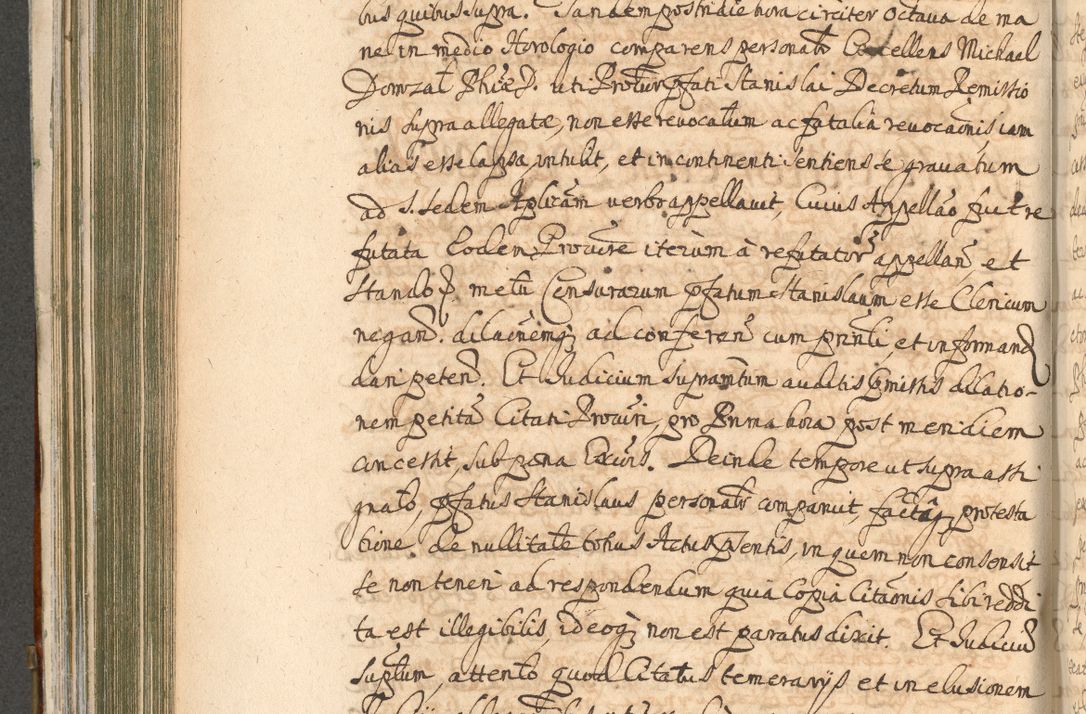 bus quibus supra. Tandem postridie hora circiter Octava de ma
ne in medio Horologio comparens personalr Excellens Michael
Domzał Phiae D. uti Procur pfati Stanislai Decretum Remissio
nis supra allegatae, non esse revocatum ac fatalia revocaonis iam
alias esse lapsa, intulit, et in continenti sentiens se gravatum
ad S. Sedem Aplicam verbo appellavit, Cuius Appellao fuit re
futata Eodem Procure iterum à refutatore appellan et
stando p metu Censurarum pfatum Stanislaum esse Clericum
negan. dilaonemq ad conferen cum prinli, et informand
dari peten. Et Iudicium supramtum auditis pmissis dilatio-
nem petita Citati Procuri, pro Prima hora post meridiem
concessit, sub paena Excois. Deinde tempore ut supra assi
gnato, pfatus Stanislaus personalr comparuit, factaq protesta
tione de nullitate totius Actus psentis, in quem non consensit
se non teneri ad respondendum quia Copia Citaonis sibi reddi
ta est illegibilis, ideoq non est paratus dixit. Et Iudiciu
suptum, attento quod Citatus temerarys et in elusionem